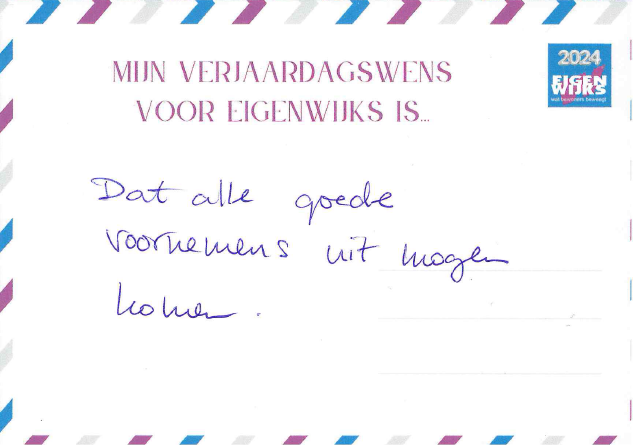 MIJN VERJAARDAGSWENS
VOOR EIGENWIJKS IS...
2024
EIGEN
WIJKS
wat bewoners beweegt
Dat alle goede
voornemens uit mogen
komen.